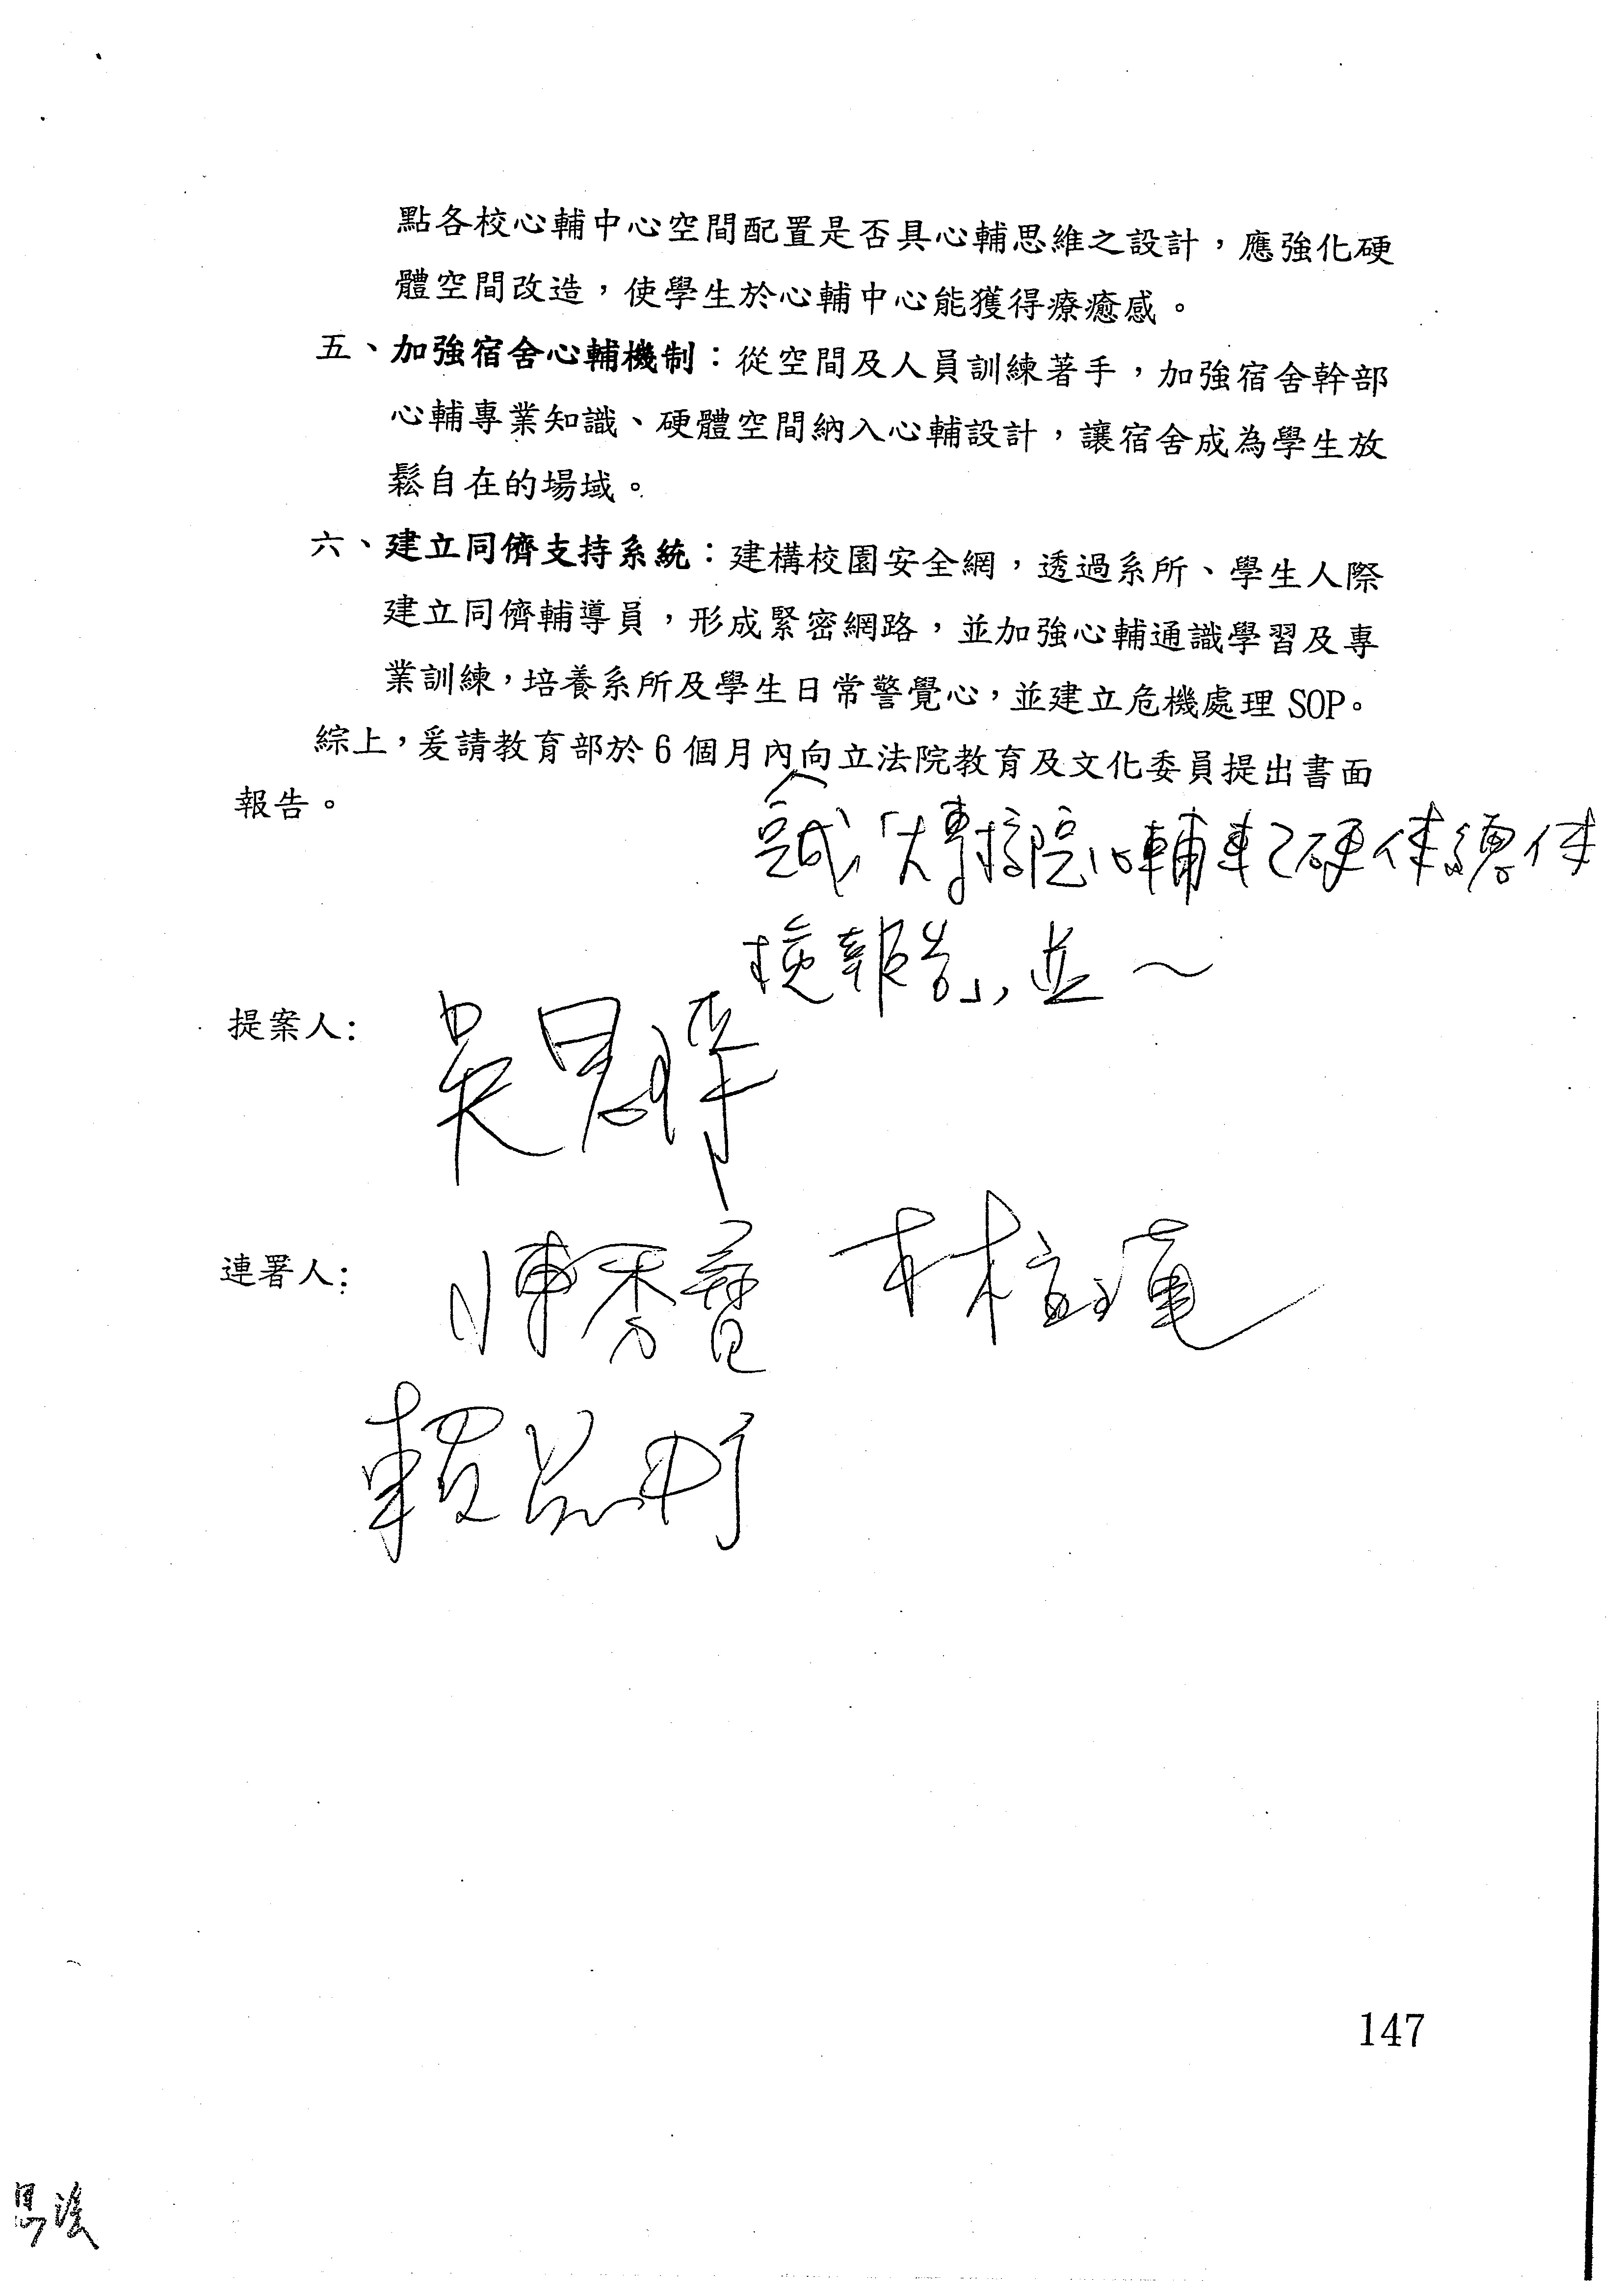 點各校心輔中心空間配置是否具心輔思維之設計，應強化硬
體空間改造，使學生於心輔中心能獲得療癒感。
五、加強宿舍心輔機制：從空間及人員訓練著手，加強宿舍幹部
心輔專業知識、硬體空間納入心輔設計，讓宿舍成為學生放
鬆自在的場域。
六、建立同儕支持系統：建構校園安全網，透過系所、學生人際
建立同儕輔導員，形成緊密網路，並加強心輔通識學習及專
業訓練，培養系所及學生日常警覺心，並建立危機處理 SOP。
綜上，爰請教育部於 6 個月內向立法院教育及文化委員提出書面
報告。
完成「大專校院心輔軟硬体總体
檢報告」，並～
提案人：
吳思瑤
連署人：
陳秀寳 林宜瑾
賴品妤
147